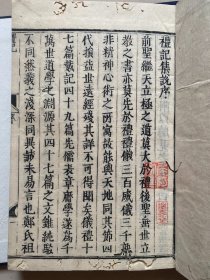 禮記集說序
前聖繼天立極之道莫大於禮後聖垂世立
教之書亦莫先於禮禮儀三百威儀三千孰
非精神心術之所寓故能與天地同其節四
代損益世遠經殘其詳不可得聞矣儀禮十
七篇戴記四十九篇先儒表章庸學遂爲千
萬世道學之淵源其四十七篇之文雖純駁
不同然義之淺深同異誠未易言也鄭氏祖